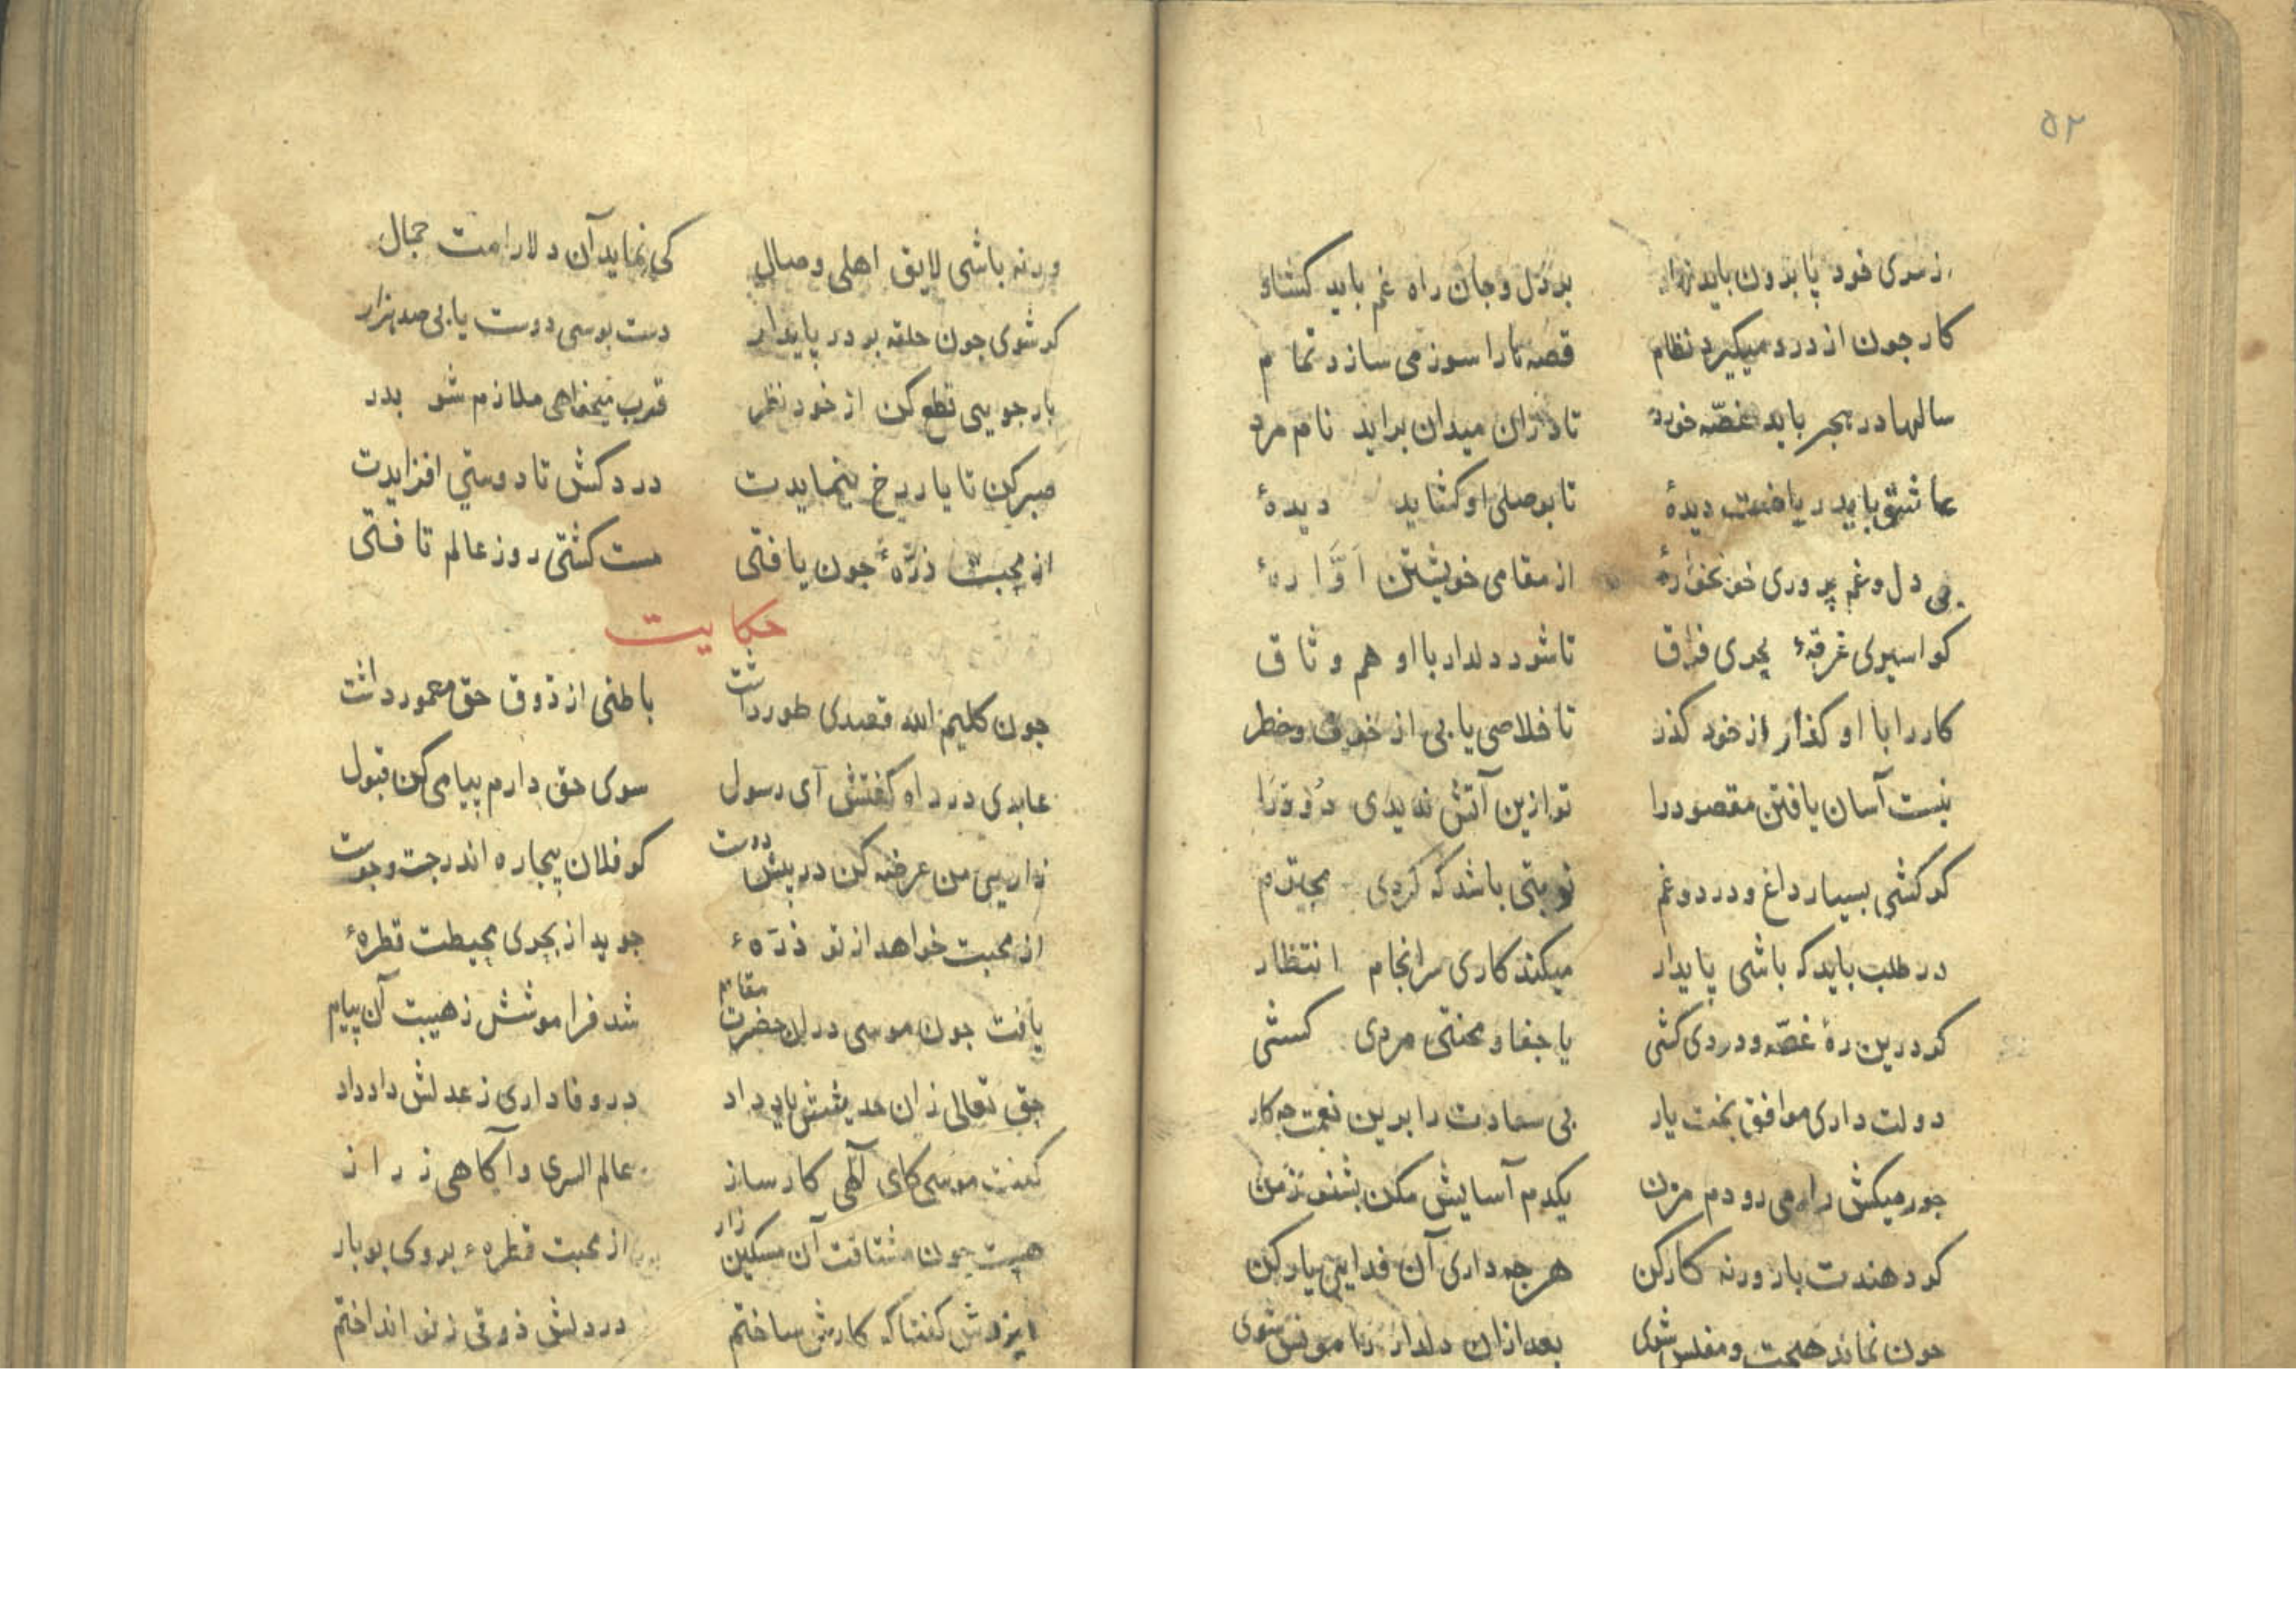 ۵۲
ز سری خود پا برون باید نهاد بر دل و جان راه غم باید کشاد
کار جون از درد میگیرد نظام قصه ما را سوز می سازد تمام
سالها در هجر باید غصّه خورد تا دران میدان براید نام مرد
عاشقی باید ریاضت دیدۀ تا بوصلی او کشاید دیدۀ
بی دل و غم پروری خونخوارۀ از مقامی خویشتن آوّارهٔ
کو اسیری غرقهٔ بحری فراق تا شود دلدار با او هم وثاق
کار را با او کذار از خود کذر تا خلاصی یابی از خوف و خطر
نیست آسان یافتن مقصود را تو ازین آتش ندیدی دُود را
کر کشی بسیار داغ و درد و غم نوبتی باشد که کردی محترم
در طلب باید که باشی پایدار میکند کاری سرانجام انتظار
کر درین رهٔ غصّه و دردی کشی یا جفا و محنتی مردی کشی
دولت داری موافق بخت یار بی سعادت را برین نعمت جه کار
جور میکش راه می رو دم مزن یکدم آسایش مکن بشنو ز من
کر دهندت بار ورنه کار کن هر جه داری آن فدایی یار کن
جون نماند هیجت و مفلس شوی بعد ازان دلدار را مونس شوی
ور نه باشی لایق اهلی وصال کی نماید آن دلارامت جمال
کر شوی جون حلقه بر در پایدار دست بوسی دوست یابی صد هزار
بار جویی قطع کن از خود نظر قرب میخواهی ملازم شو بدر
صبر کن تا یار رخ بنمایدت درد کش تا دوستی افزایدت
از محبت ذرّهٔ جون یافتی مست کشتی روز عالم تافتی
حکایت
جون کلیم الله قصدی طور داشت باطنی از ذوق حق معمور داشت
عابدی در راه کفتش آی رسول سوی حق دارم پیامی کن قبول
زاریی من عرضه کن در پیش دوست کو فلان بیجاره اندر جست و جوست
از محبت خواهد از تو ذرّهٔ جوید از بحری محیطت قطرهٔ
یافت جون موسی دران حضرت مقام شد فراموشش ز هیبت آن پیام
حق تعالی زان حدیثش یاد داد در وفاداری ز عدلش داد داد
کفت موسی کای آلهی کار ساز عالم السری و آکاهی ز راز
هست جون مشتاقت آن مسکین زار از محبت قطرهٔ بروی ببار
ایزدش کفتا که کارش ساختم در دلش ذوقی ز نو انداختم